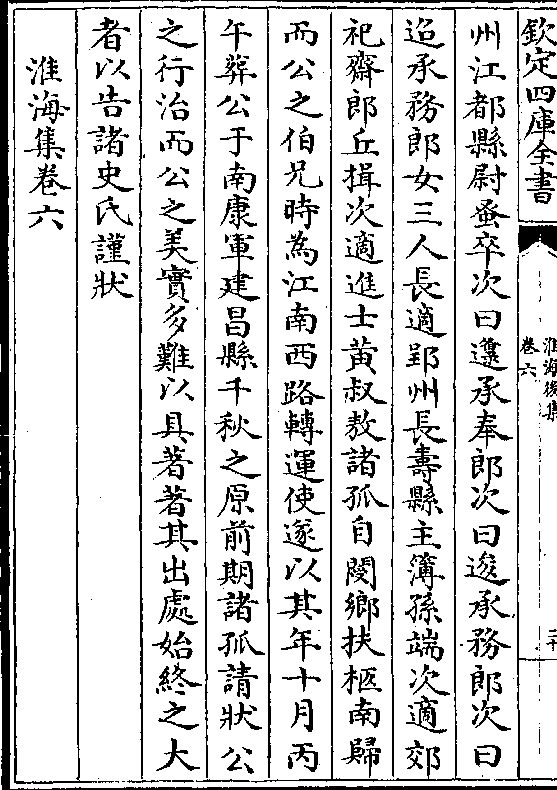 欽定四庫全書
淮海後集
卷六
二十
州江都縣尉蚤卒次曰遵承奉郎次曰逡承務郎次曰
迨承務郎女三人長適郢州長壽縣主簿孫端次適郊
祀齋郎丘揖次適進士黃叔敖諸孤自閿鄉扶柩南歸
而公之伯兄時為江南西路轉運使遂以其年十月丙
午葬公于南康軍建昌縣千秋之原前期諸孤請狀公
之行治而公之美實多難以具著著其出處始終之大
者以告諸史氏謹狀
淮海集卷六